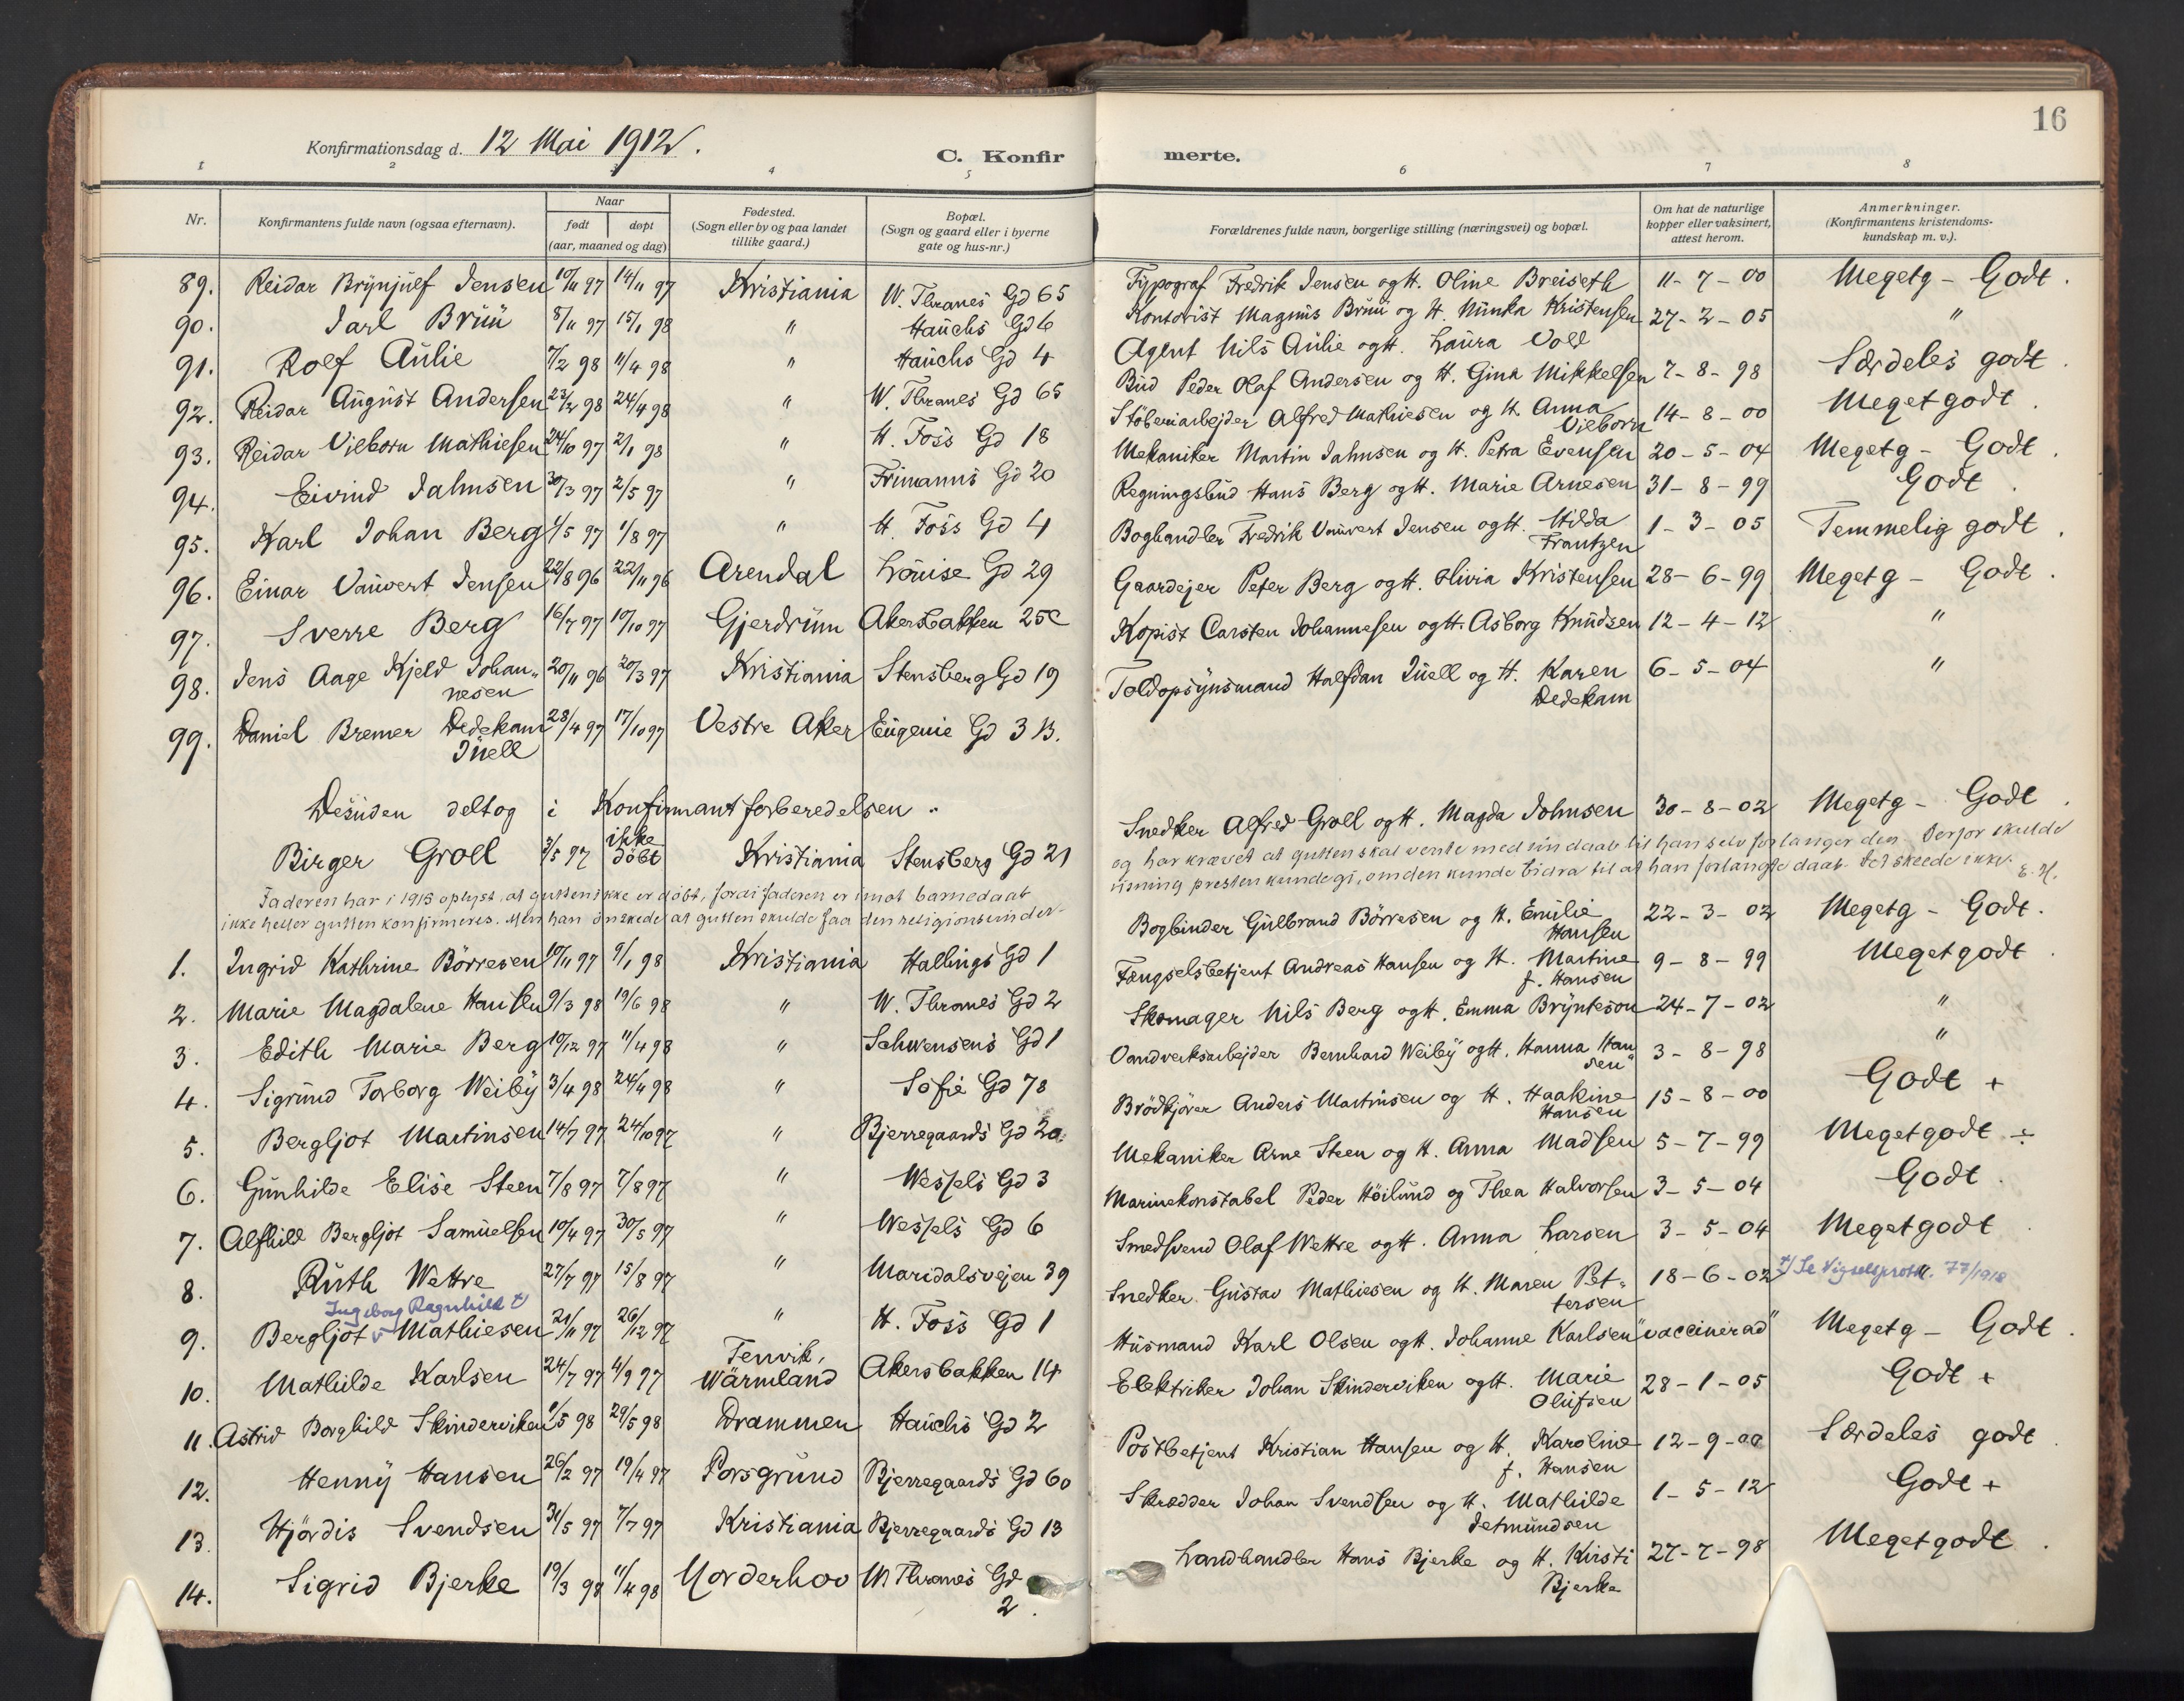 16
Konfirmationsdag d. 12 Mai 1912.
C. Konfirmerte.
1 2 3 4 5 6 7 8
Nr. | Konfirmantens fulde navn (ogsaa efternavn). | Naar født døpt (aar, maaned og dag) | Fødested. (Sogn eller by og paa landet tillike gaard.) | Bopæl. (Sogn og gaard eller i byerne gate og hus-nr.) | Forældrenes fulde navn, borgerlige stilling (næringsvei) og bopæl. | Om hat de naturlige kopper eller vaksinert, attest herom. | Anmerkninger. (Konfirmantens kristendoms-kundskap m. v.).
89. Reidar Brynjulf Jensen 10/11 97 14/11 97 Kristiania W. Thranes Gd 65 Typograf Fredrik Jensen og H. Oline Breiseth 11-7-00 Megetg - Godt.
90. Jarl Bruu 8/11 97 15/1 98 " Hauchs Gd 6 Kontorist Magnus Bruu og H. Minka Kristensen 27-2-05 "
91. Rolf Aulie 7/2 98 11/4 98 " Hauchs Gd 4 Agent Nils Aulie og H. Laura Voll Særdeles godt.
92. Reidar August Andersen 23/2 98 24/4 98 " W. Thranes Gd 65 Bud Peder Olaf Andersen og H. Gina Mikkelsen 7-8-98 Meget godt.
93. Reidar Vilborn Mathiesen 24/10 97 2/1 98 " H. Foss Gd 18 Støberiarbejder Alfred Mathiesen og H. Anna Vilborn 14-8-00 Megetg - Godt.
94. Eivind Jahnsen 30/3 97 2/5 97 " Frimanns Gd 20 Mekaniker Martin Jahnsen og H. Petra Evensen 20-5-04 Godt.
95. Karl Johan Berg 1/5 97 1/8 97 " H. Foss Gd 4 Regningsbud Hans Berg og H. Marie Arnesen 31-8-99 Temmelig godt.
96. Einar Vauvert Jensen 22/8 96 22/11 96 Arendal Louise Gd 29 Boghandler Fredrik Vauvert Jensen og H. Hilda Frantzen 1-3-05 Megetg - Godt.
97. Sverre Berg 16/7 97 10/10 97 Gjerdrum Akersbakken 25c Gaardejer Peter Berg og H. Olivia Kristensen 28-6-99 "
98. Jens Aage Kjeld Johannesen 20/11 96 20/3 97 Kristiania Stensberg Gd 19 Kopist Carsten Johannesen og H. Asborg Knudsen 12-4-12 "
99. Daniel Bremer Dedekam Juell 28/4 97 17/10 97 Vestre Aker Eugenie Gd 3 B. Toldopsynsmand Halfdan Juell og H. Karen Dedekam 6-5-04
Desuden deltog i Konfirmantforberedelsen:
Birger Groll 3/5 97 ikke döbt Kristiania Stensberg Gd 21 Snedker Alfred Groll og H. Magda Johnsen 30-8-02 Megetg - Godt.
Faderen har i 1913 oplyst, at gutten ikke er döbt, fordi faderen er imot barnedaab og har krævet at gutten skal vente med sin daab til han selv forlanger den. Derfor skulde
ikke heller gutten konfirmeres. Men han önskede at gutten skulde faa den religionsundervisning presten kunde gi, om den kunde bidra til at han forlangte daab. Det skeede ikke. E.H.
1. Ingrid Kathrine Börresen 10/11 97 9/1 98 Kristiania Hallings Gd 1 Bogbinder Gulbrand Börresen og H. Emilie Hansen 22-3-02 Megetg - Godt.
2. Marie Magdalene Hansen 9/3 98 19/6 98 " W. Thranes Gd 2 Fængselsbetjent Andreas Hansen og H. Martine f. Hansen 9-8-99 Meget godt.
3. Edith Marie Berg 10/12 97 11/4 98 " Schwensens Gd 1 Skomager Nils Berg og H. Emma Brynteson 24-7-02 "
4. Sigrund Torborg Weiby 3/4 98 24/4 98 " Sofie Gd 78 Vandverksarbejder Bernhard Weiby og H. Hanna Hansen 3-8-98 "
5. Bergljot Martinsen 14/7 97 24/10 97 " Bjerregaards Gd 20 Brödkjörer Anders Martinsen og H. Haakine Hansen 15-8-00 Godt +
6. Gunhilde Elise Steen 7/8 97 7/8 97 " Wessels Gd 3 Mekaniker Arne Steen og H. Anna Madsen 5-7-99 Meget godt ÷
7. Alfhild Bergljot Samuelsen 10/4 97 30/5 97 " Wessels Gd 6 Marinekonstabel Peder Höilund og Thea Halvorsen 3-5-04 Godt.
8. Ruth Wettre 27/7 97 15/8 97 " Maridalsvejen 39 Smedsvend Olaf Wettre og H. Anna Larsen 3-5-04 Meget godt.
9. Bergljot Ingeborg Ragnhild x) Mathiesen 21/11 97 26/12 97 " H. Foss Gd 1 Snedker Gustav Mathiesen og H. Maren Pettersen 18-6-02 x) Se Vigselsprotk. 77/1918
10. Mathilde Karlsen 24/7 97 4/9 97 Tenvik, Wärmland Akersbakken 14 Husmand Karl Olsen og H. Johanne Karlsen "vaccinerad" Megetg - Godt.
11. Astrid Borghild Skinderviken 1/5 98 29/5 98 Drammen Hauchs Gd 2 Elektriker Johan Skinderviken og H. Marie Olufsen 28-1-05 Godt +
12. Henny Hansen 26/2 97 19/4 97 Porsgrund Bjerregaards Gd 60 Postbetjent Kristian Hansen og H. Karoline f. Hansen 12-9-00 Særdeles godt.
13. Hjördis Svendsen 31/5 97 7/7 97 Kristiania Bjerregaards Gd 13 Skrædder Johan Svendsen og H. Mathilde Jetmundsen 1-5-12 Godt +
14. Sigrid Bjerke 19/3 98 11/4 98 Norderhov M Thranes Gd 2. Landhandler Hans Bjerke og H. Kirsti Bjerke 27-7-98 Meget godt.